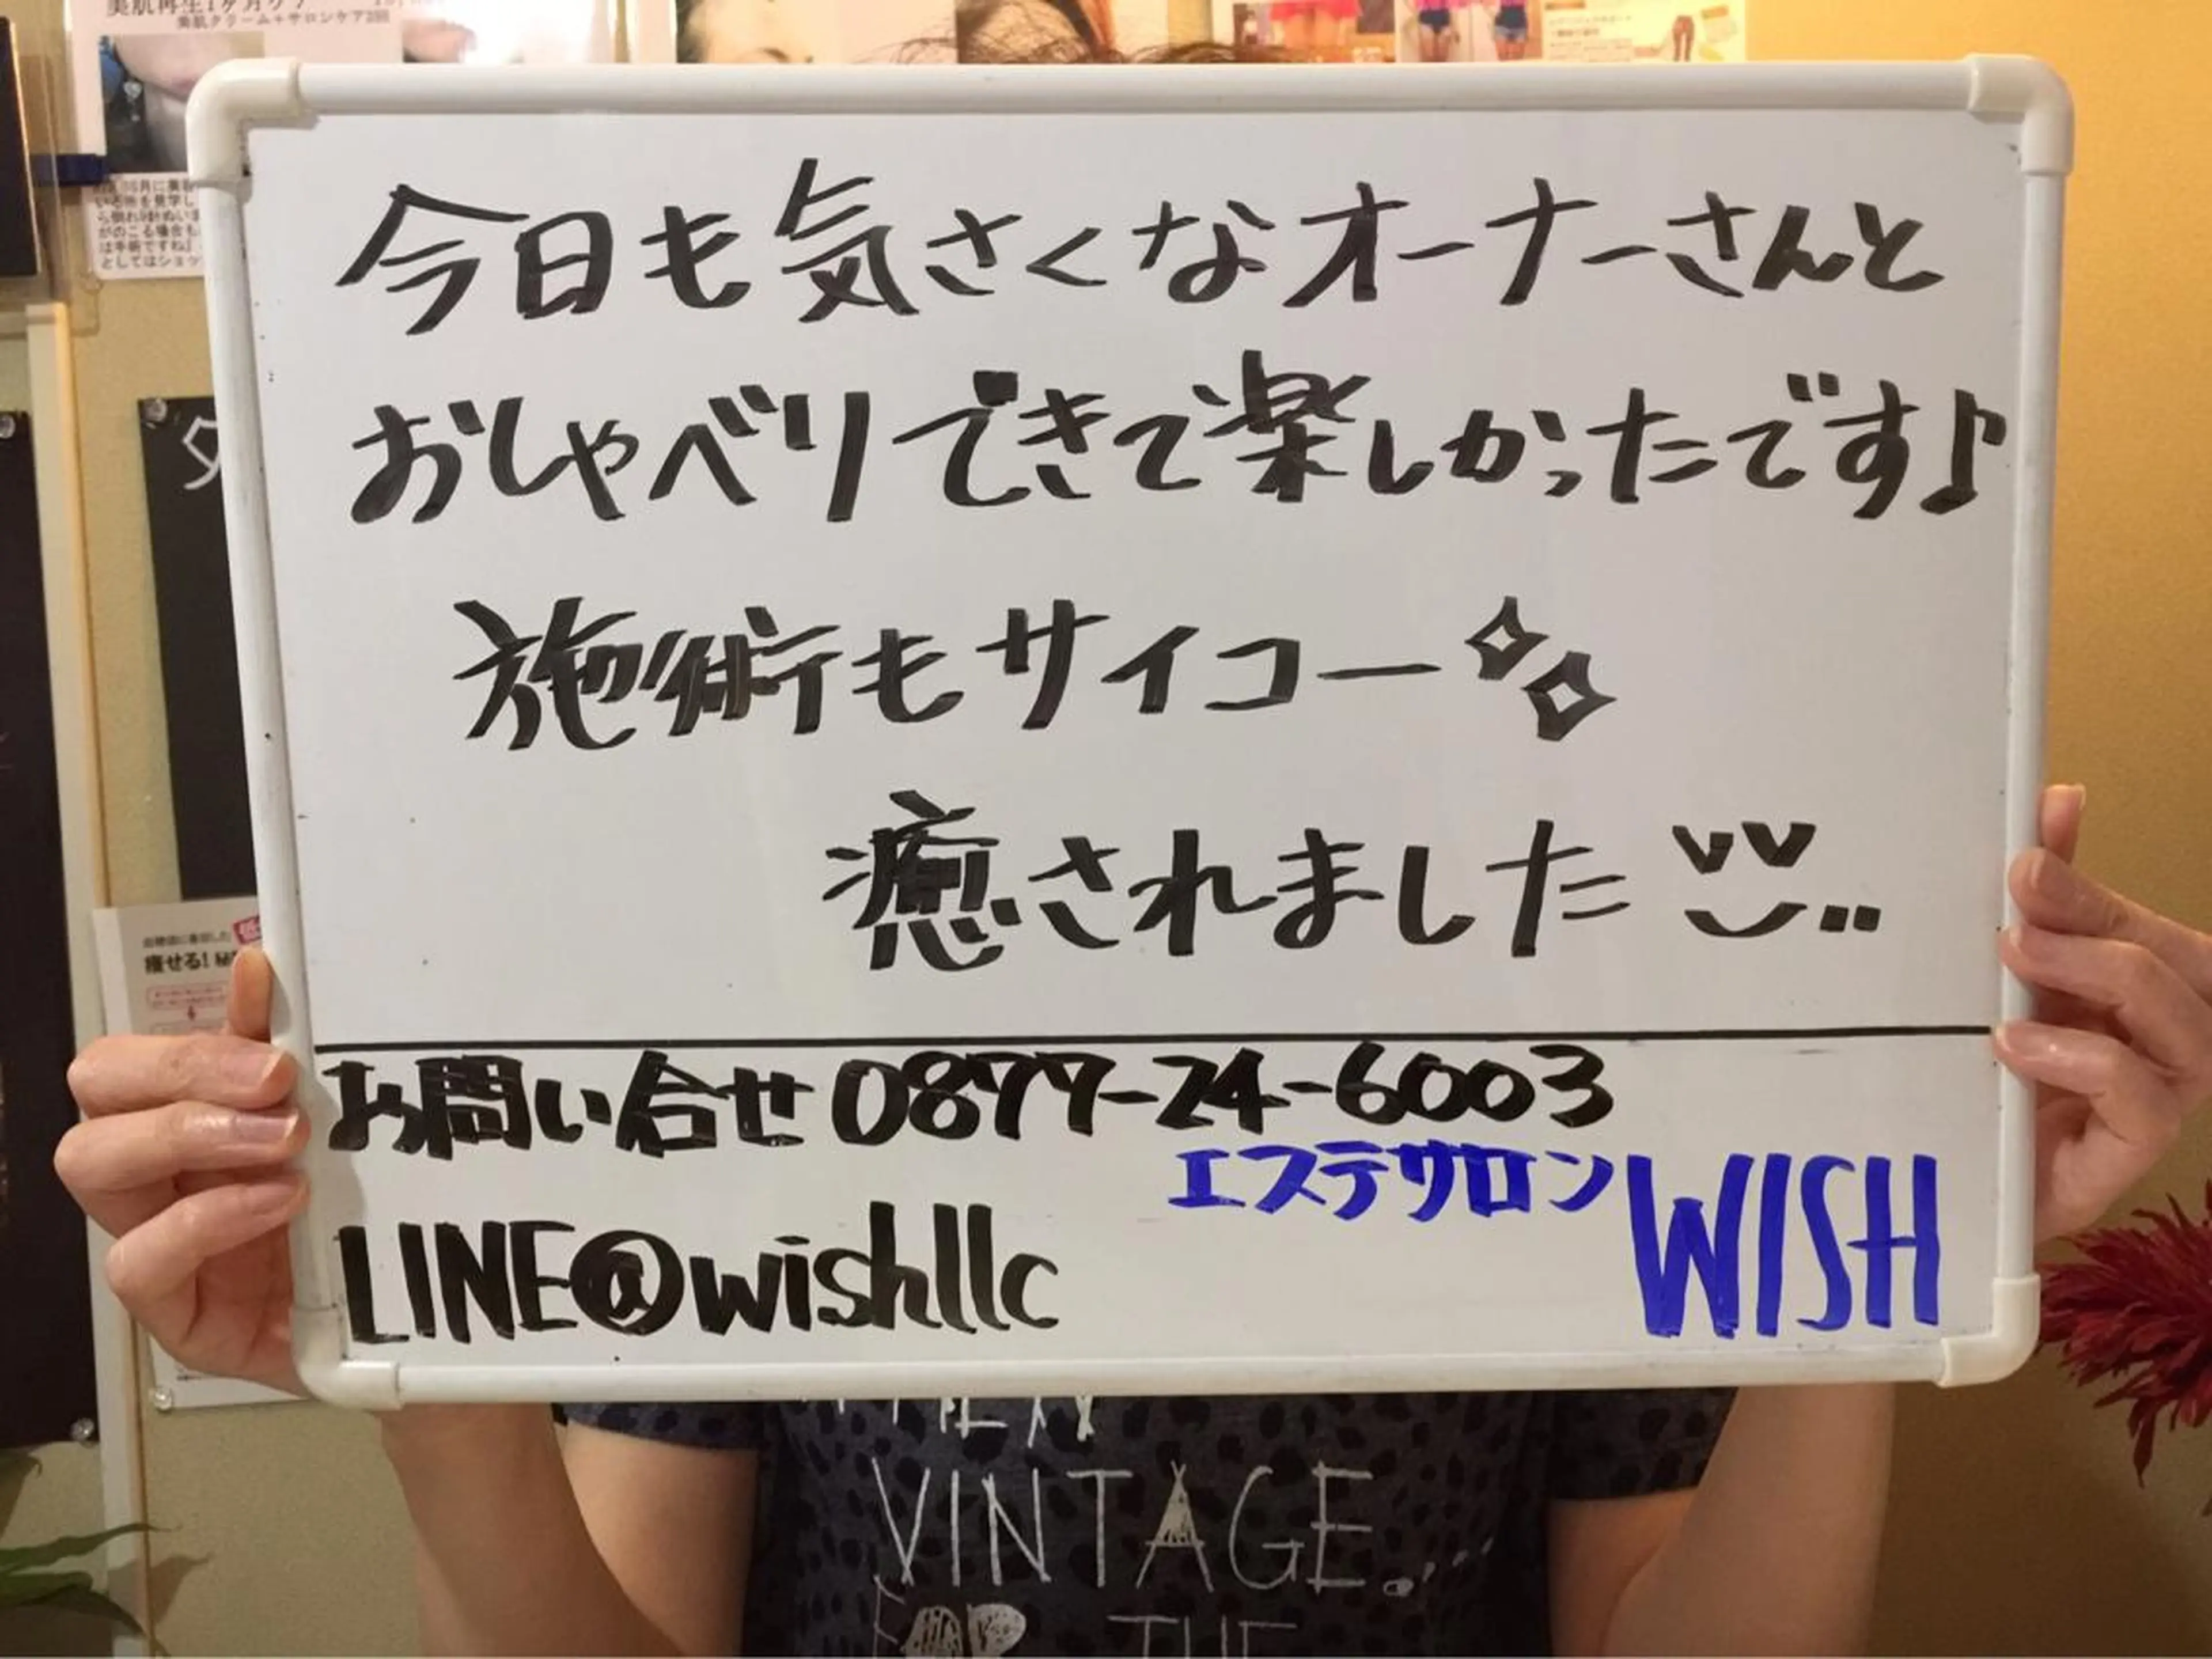 美肌クリーム+サロンケア3回
今日も気さくなオーナーさんと
おしゃべりできて楽しかったです♪
施術もサイコー
癒されました
お問い合せ 0877-24-6003
エステサロン WISH
LINE@wishllc
痩せる!
VINTAGE.
FOR THE